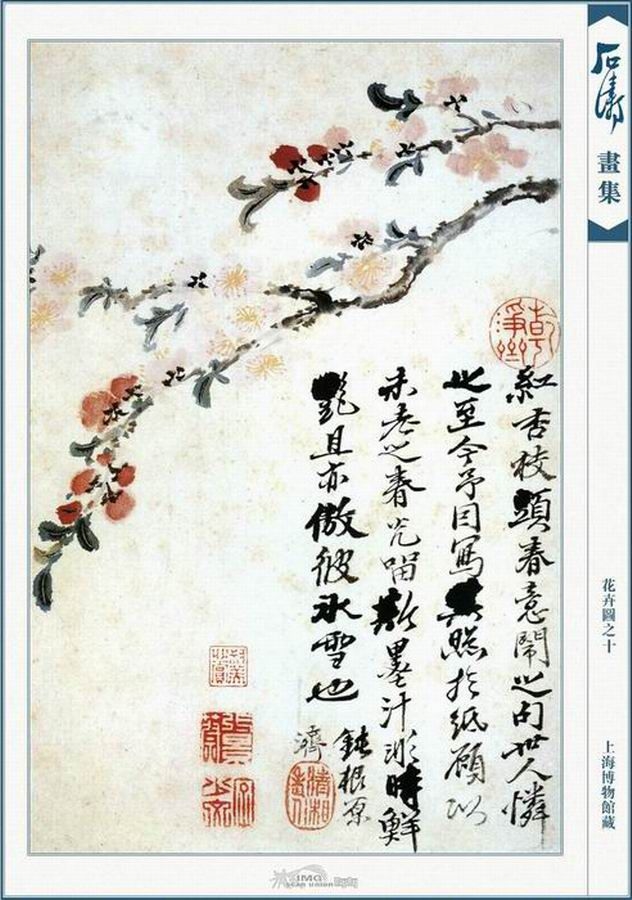 石濤
畫集
花卉圖之十
上海博物館藏
紅杏枝頭春意鬧之句世人憐
至今予寫照於紙顧以
未老之春光留墨汁時鮮
艷且亦傲彼冰雪也
鈍根原
濟
IMG
SCAN UNION